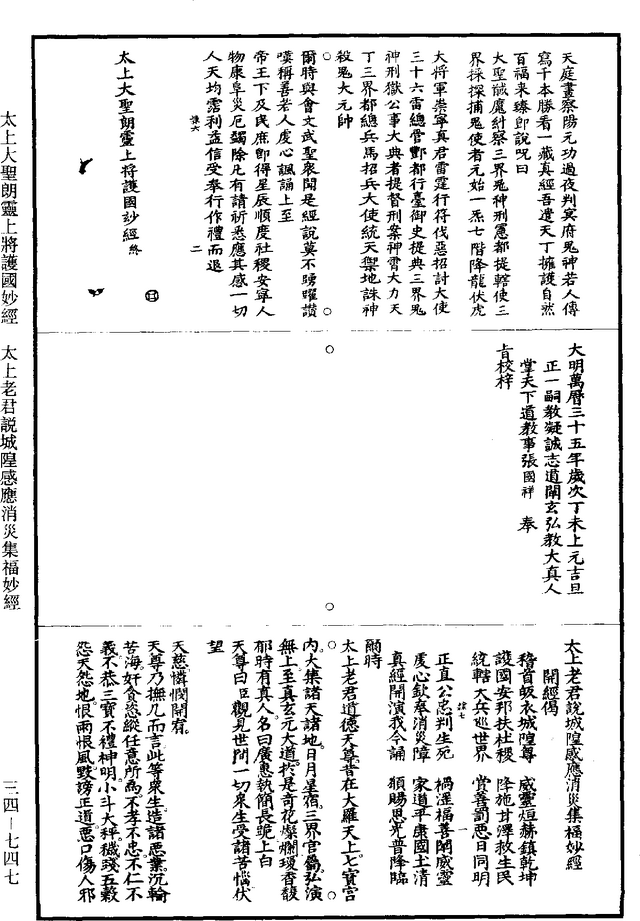 天庭晝察陽元功過夜判冥府鬼神若人傳
寫千本勝看一藏真經吾遣天丁擁護自然
百福来臻即說呪曰
大聖馘魔糾察三界鬼神刑憲都提轄使三
界採探捕鬼使者元始一炁七階降龍伏虎
大將軍崇寧真君雷霆行符伐惡招討大使
三十六雷總管酆都行臺御史提典三界鬼
神刑獄公事大典者提督刑案神霄大力天
丁三界都總兵馬招兵大使統天禦地誅神
殺鬼大元帥
爾時與會文武聖衆聞是經說莫不踴躍讃
嘆稱善若人虔心諷誦上至
帝王下及民庶即得星辰順度社稷安寧人
物康阜災厄蠲除凡有請祈悉應其感一切
人天均霑利益信受奉行作禮而退
太上大聖朗靈上將護國妙經 終
大明萬曆三十五年歲次丁未上元吉旦
正一嗣教凝誠志道闡玄弘教大真人
掌天下道教事張國祥 奉
旨校梓
太上老君說城隍感應消災集福妙經
開經偈
稽首皈衣城隍尊 威靈烜赫鎮乾坤
護國安邦扶社稷 降施甘澤救生民
統轄大兵巡世界 賞善罰惡日同明
正直公忠判生死 禍淫福善闡威靈
虔心欽奉消災障 家道平康國土清
真經開演我今誦 願賜恩光普降臨
爾時
太上老君道德天尊昔在大羅天上七寶宮
内大集諸天諸地日月星宿三界官屬弘演
無上至真玄元大道於是奇花燦爛瓊香馥
郁時有真人名曰廣惠執簡長跪上白
天尊曰臣觀見世間一切衆生受諸苦惱伏
望
天慈憐憫開宥
天尊乃撫几而言此等衆生造諸惡業沉輪
苦海奸貪恣縱任意所為不孝不忠不仁不
義不恭三寶不禮神明小斗大秤穢殘五穀
怨天怨地恨雨恨風毀謗正道惡口傷人邪
太上大聖朗靈上將護國妙經 太上老君説城隍感應消災集福妙經
三四－七四七